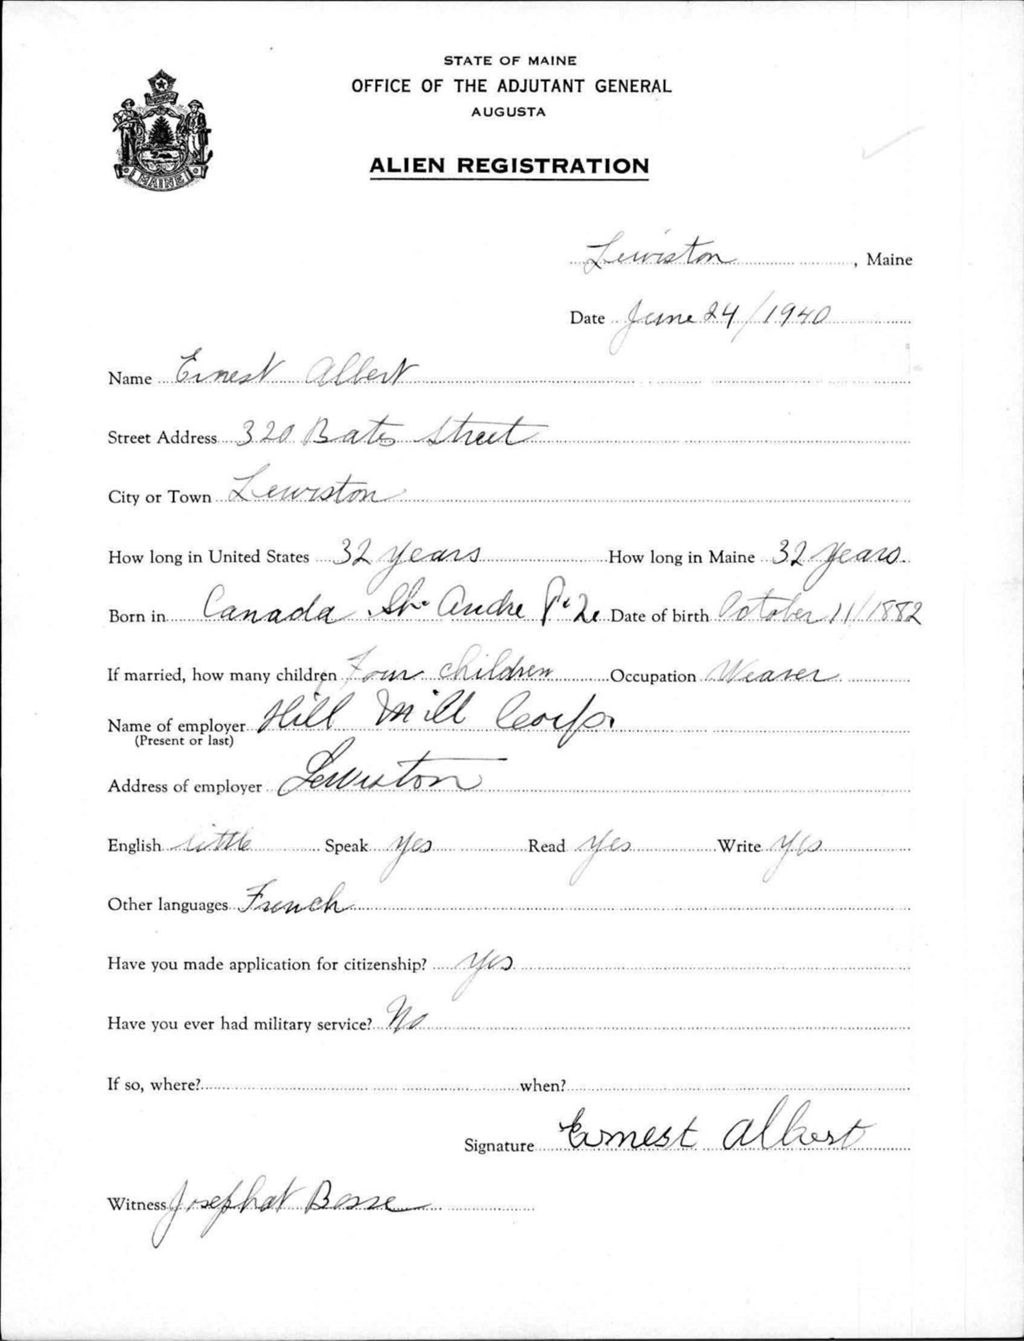 STATE OF MAINE
OFFICE OF THE ADJUTANT GENERAL
AUGUSTA
ALIEN REGISTRATION
MAINE
Lewiston, Maine
Date June 24/1940
Name Ernest Albert
Street Address 320 Bates Street
City or Town Lewiston
How long in United States 32 years How long in Maine 32 years.
Born in Canada St. Andre P.2. Date of birth October 11/1882
If married, how many children Four children Occupation Weaver
Name of employer Hill Mill Corp.
(Present or last)
Address of employer Lewiston
English little Speak yes Read yes Write yes
Other languages French
Have you made application for citizenship? yes
Have you ever had military service? No
If so, where? when?
Signature Ernest Albert
Witness Josephat Bosse